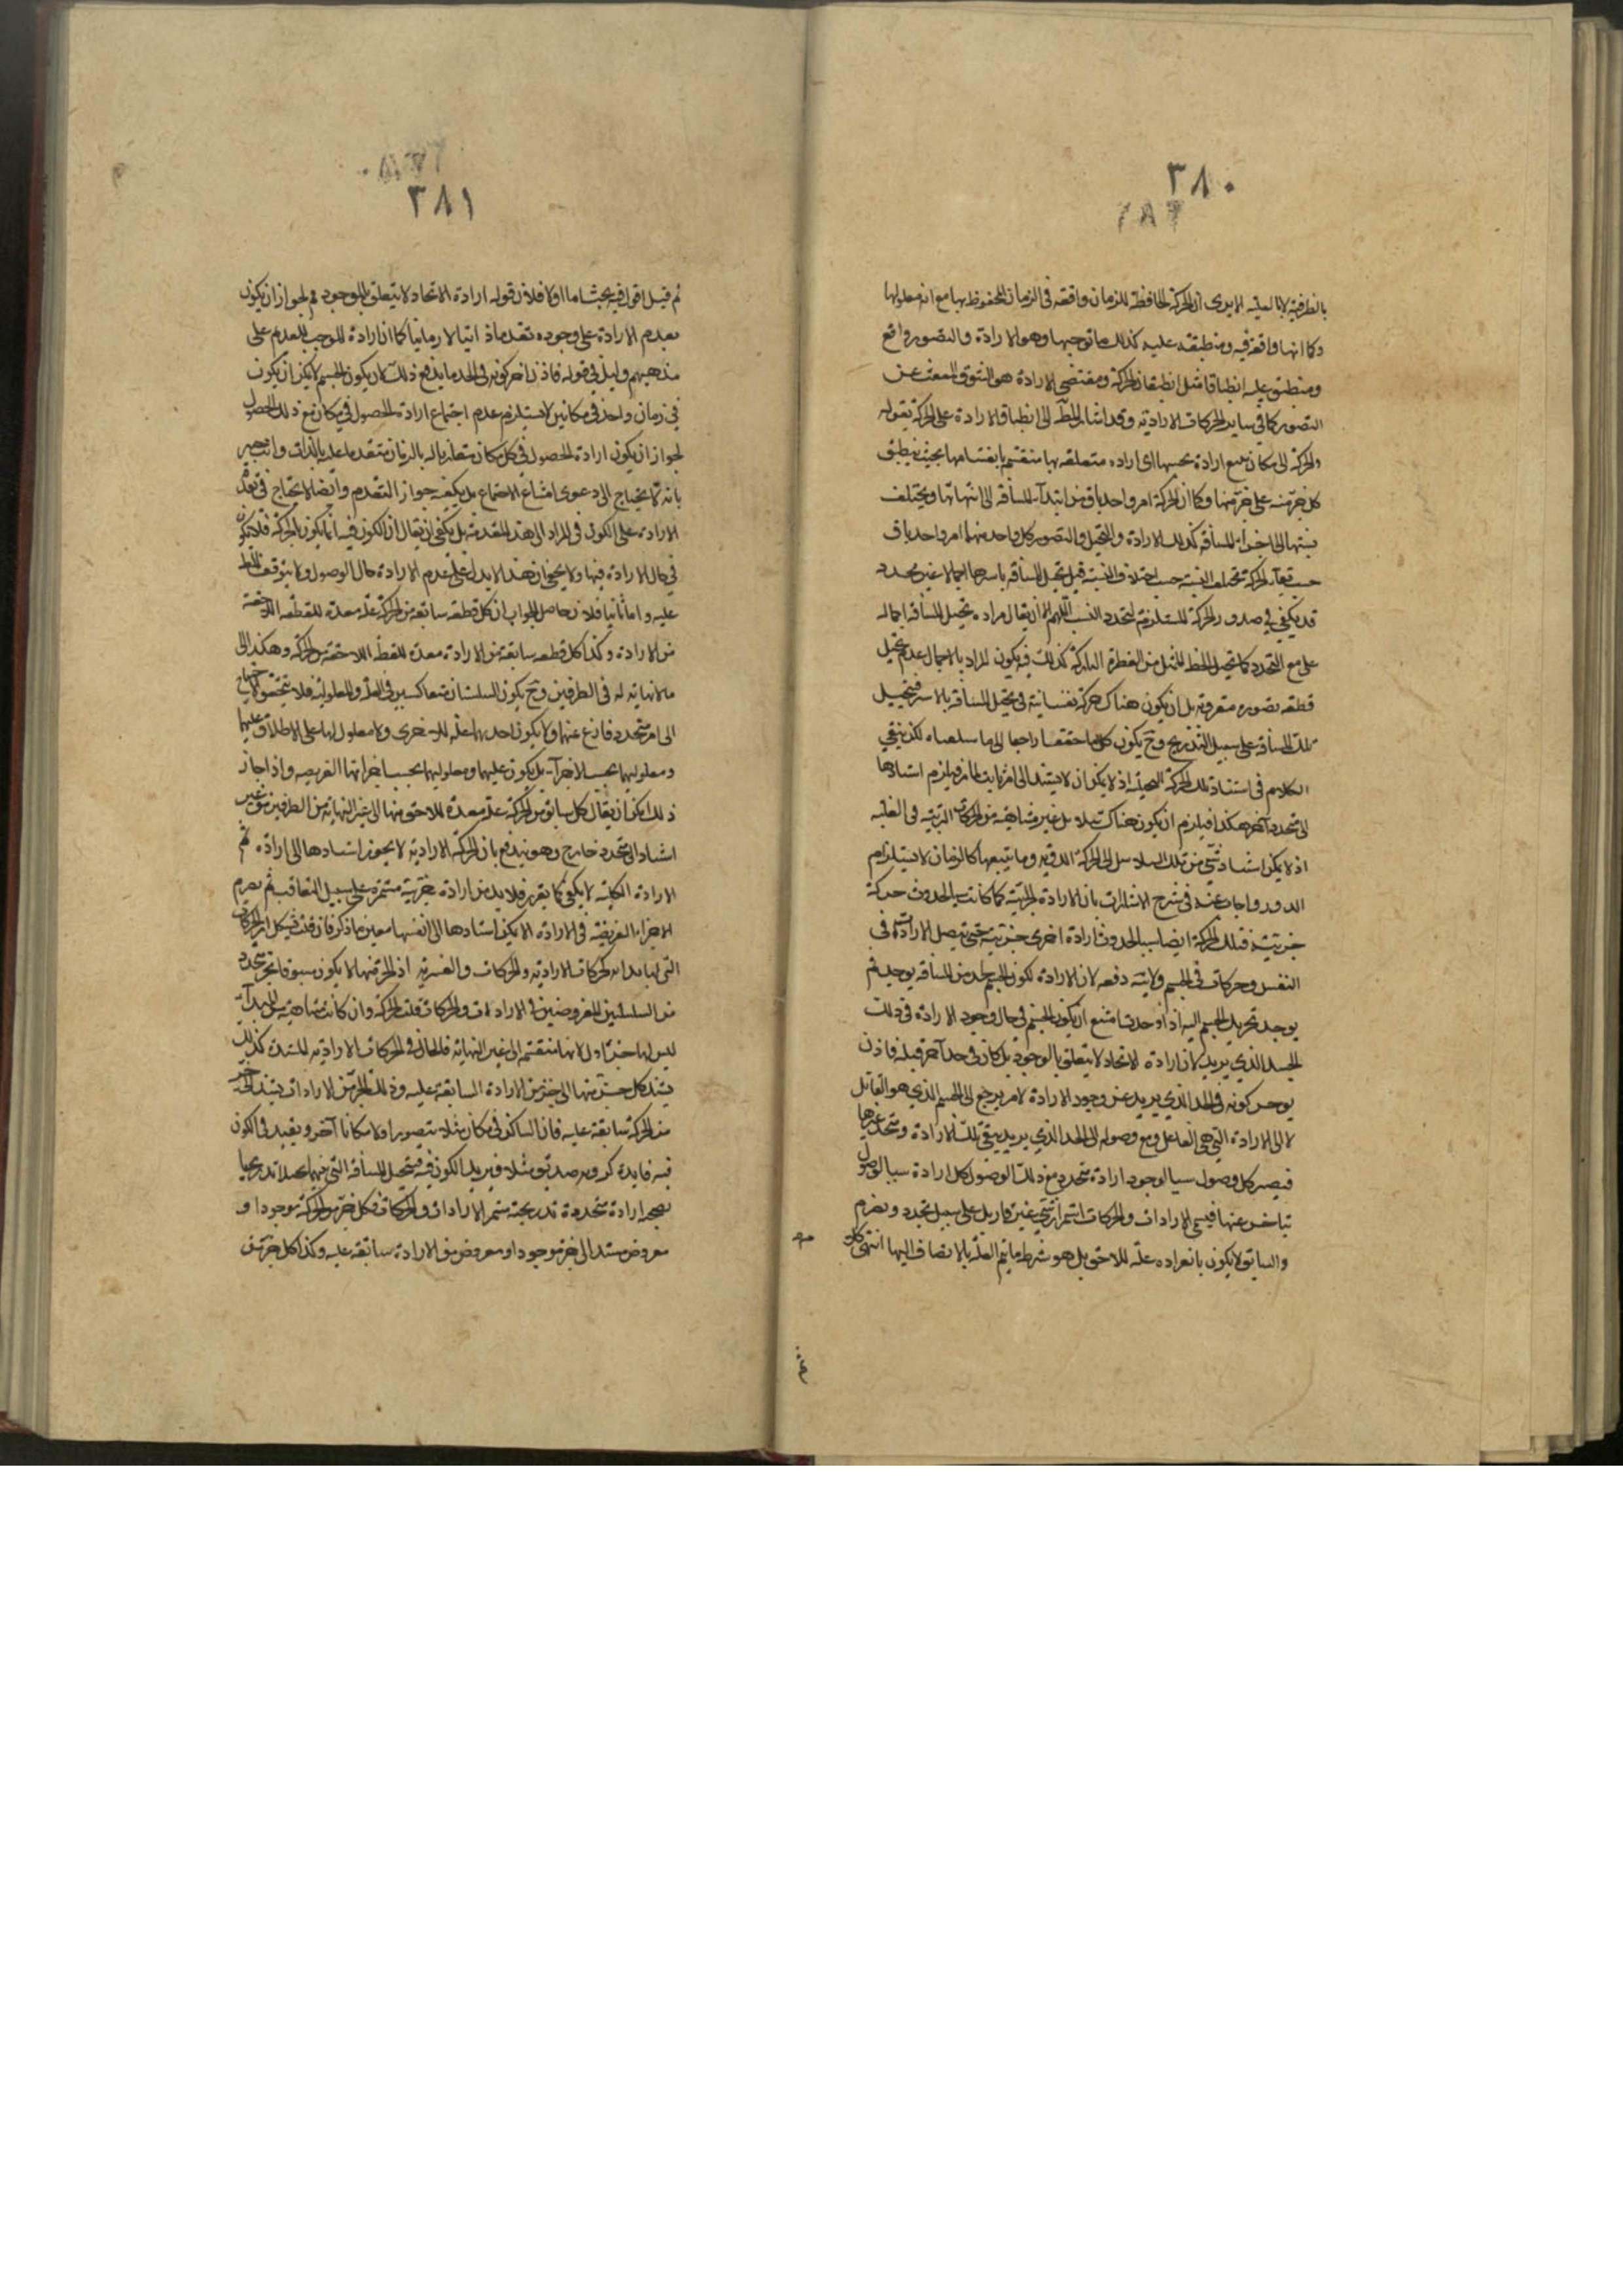 ٣٨٠
بالظرفية لا بالعلية الا يرى ان الحركة الحافظة للزمان واقعة فى الزمان المحفوظ بها مع انه معلولها
وكما انها واقعة فيه ومنطبقة عليه كذلك ما توجبها وهو الارادة والتصور واقع
ومنطبق عليه انطباقا مثل انطباق الحركة ومقتضى الارادة هو الشوق المنبعث عن
التصور كما فى ساير الحركات الارادية وقد اشار الى انطباق الارادة على الحركة بقوله
والحركة الى مكان تتبع ارادة بحسبها اى ارادة متعلقة بها منقسم بانقسامها بحيث ينطبق
كل جزء منه على جزء منها وكما ان الحركة امر واحد باق من ابتداء المسافة الى انتهائها ويختلف
نسبتها الى اجزاء المسافة كذلك الارادة والتخيل والتصور كل واحد منهما امر واحد باق
حسب بقاء الحركة تختلف النسبة حسب اختلاف النسبة قيل تخيل المسافة باسرها اجمالا غير متجدد
قد يكفى فى صدور الحركة المستلزمة لتجدد النسب اللهم الا ان يقال مراده تخيل المسافة اجماله
على مع التجدد كما تخيل الخط الممثل من القطرة النازلة كذلك فيكون المراد بالاجمال عدم تخيل
قطعة بصورة متفرقة بل ان يكون هناك حركة نفسانية فى تخيل المسافة بالاسر فيتخيل
تلك المسافة على سبيل التدريج وح يكون راجعا الى ما لكن بقى
الكلام فى استناد تلك الحركة اذ لا يمكن ان لا يستند الى امر ثابت فيلزم استنادها
الى متجدد آخر هكذا فيلزم ان يكون هناك سلاسل غير متناهية من الحركات المترتبة فى العلية
اذ لا يمكن استناد شئ من تلك السلاسل الى الحركة الدورية وما يتبعها كالزمان لاستلزام
الدور واجاب عنه فى شرح الاشارات بان الارادة الجزئية كما كانت سببا لحدوث حركة
جزئية فتلك الحركة ايضا سبب لحدوث ارادة اخرى جزئية حتى يتصل الارادات فى
النفس وحركات فى الجسم ولا يتم دفعه لان الارادة لكون الجسم فى حد من المسافة يوجد ثم
يوجد تحريك الجسم اليه اذ لو حدثا امتنع ان يكون الجسم فى حال وجود الارادة فى ذلك
الحد الذي يريد لان ارادة الايجاد لا يتعلق بالموجود بل كان فى حد آخر قبله فاذن
يوخر كونه فى الحد الذي يريد عن وجود الارادة لامر يرجع الى الجسم الذي هو القابل
لا الى الارادة التى هى الفاعل ومع وصوله الى الحد الذي يريد يبقى تلك الارادة ويتجدد غيرها
فيصير كل وصول سببا لوجود ارادة تتجدد مع ذلك الوصول وكل ارادة سببا لوصول
يتاخر عنها فيستمر الارادات والحركات استمرار شئ غير قار بل على سبيل تجدد وتصرم
والسابق لا يكون بانفراده علة للاحق بل هو شرط ما يتم العلة بالانضاف اليها انتهى كلامه
ثم
٣٨١
ثم قيل اقول فيه بحث اما اولا فلان قوله ارادة الايجاد لا يتعلق بالموجود مم لجواز ان يكون
تقدم الارادة على وجوده تقدما ذاتيا لا زمانيا كما ان ارادة الموجب للعدم على
مذهبهم وليل فى قوله فاذن تاخر كونه فى الحد ما يدفع ذلك لان يكون الجسم لا يمكن ان يكون
فى زمان واحد فى مكانين لا يستلزم عدم اجتماع ارادة الحصول فى مكان مع ذلك الحصول
لجواز ان يكون ارادة الحصول فى كل مكان مقارنا له بالزمان متقدما عليه بالذات وانت خبير
بانه لا يحتاج الى دعوى امتناع الاجتماع بل يكفيه جواز التقدم وايضا لا يحتاج فى تقدم
الارادة على الكون فى المراد الى هذه المقدمة بل يكفى ان يقال ان الكون فيه انما يكون بالحركة فلا يكون
فى حال الارادة فيها ولا يخفى ان هذا لا يدل على عدم الارادة حال الوصول ولا يتوقف المط
عليه واما ثانيا فلان حاصل الجواب ان كل قطعة سابقة من الحركة علة معدة للقطعة اللاحقة
من الارادة وكذا كل قطعة سابقة من الارادة معدة للقطعة اللاحقة من الحركة وهكذا الى
ما لا نهاية له فى الطرفين وح يكون السلسلتان متعاكسين فى العلية والمعلولية فلا يتحقق الاحتياج
الى امر متجدد خارج عنهما ولا يكون احديهما علة للاخرى ولا معلول لها على الاطلاق
ومعلوليها بحسب الاجزاء بل يكون عليتها ومعلوليتها بحسب اجزائها الفرضية واذا جاز
ذلك امكن ان يقال كل سابق من الحركة علة معدة للاحق منها الى غير النهاية من الطرفين من غير
استناد الى متجدد خارج وهو يندفع بان الحركة الارادية لا يجوز استنادها الى ارادة ثم
الارادة الكلية لا يكفى كما تقرر فلا بد من ارادة جزئية مستمرة على سبيل التعاقب ثم تصرم
الاجزاء الفرضية فى الارادة لا يمكن استنادها الى انفسها معين ما ذكر فان قلت فيشكل امر الحركات
التى لها بداية كحركات الارادية والحركات والقسرية اذ الجزء منها لا يكون مسبوقا بجزء متجدد
من السلسلتين المفروضتين فى الارادات والحركات قلت الحركة وان كانت متناهية من المبدأ
ليس لها جزء اول لانها منقسمة الى غير النهاية فالحال فى الحركات الارادية المبتدئة كذلك
يستند كل جزء منها الى جزء من الارادة السابقة عليه وذلك الجزء من الارادات يستند الى جزء
من الحركة سابقة عليه فان الساكن فى مكان مثلا يتصور اولا مكانا آخر ويقيد فى الكون
فيه فايدة كرؤية صديق مثلا فيريد الكون فيه فيتخيل المسافة التى بينهما تخيلا تدريجيا
بصحة ارادة متجددة تدريجية مستمر الارادات والحركات فكل جزء من الحركة موجودا او
معروض مستند الى جزء موجود او معروض من الارادة سابقة عليه وكذا كل جزء من